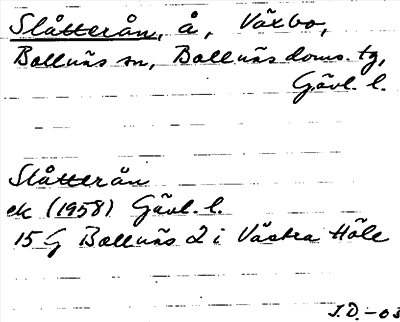 Slåtterån, å, Växbo,
Bollnäs sn, Bollnäs doms. tg,
Gävl. l.
Slåtterån
ek (1958) Gävl. l.
15 G Bollnäs 2 i Västra Höle
J.D.-03